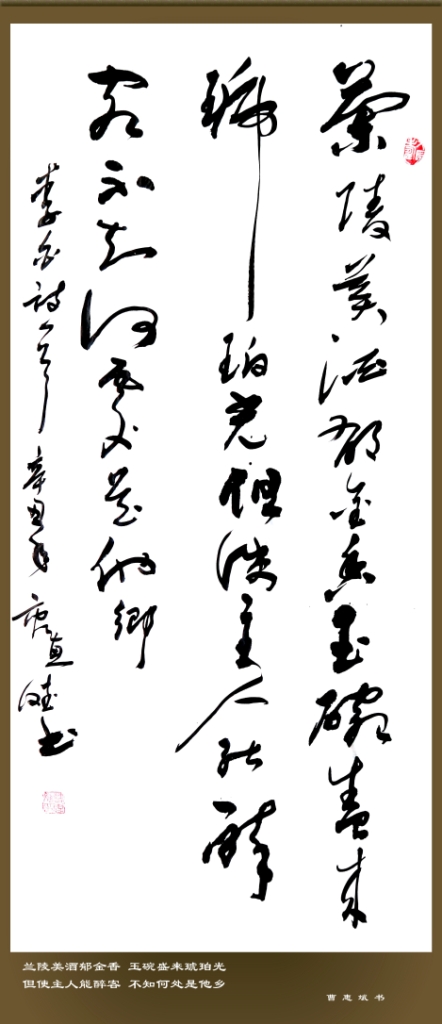 蘭陵美酒郁金香玉碗盛来
琥珀光但使主人能醉
客不知何處是他鄉
李白詩一首 辛丑年 惠斌书
兰陵美酒郁金香 玉碗盛来琥珀光
但使主人能醉客 不知何处是他乡
曹惠斌书